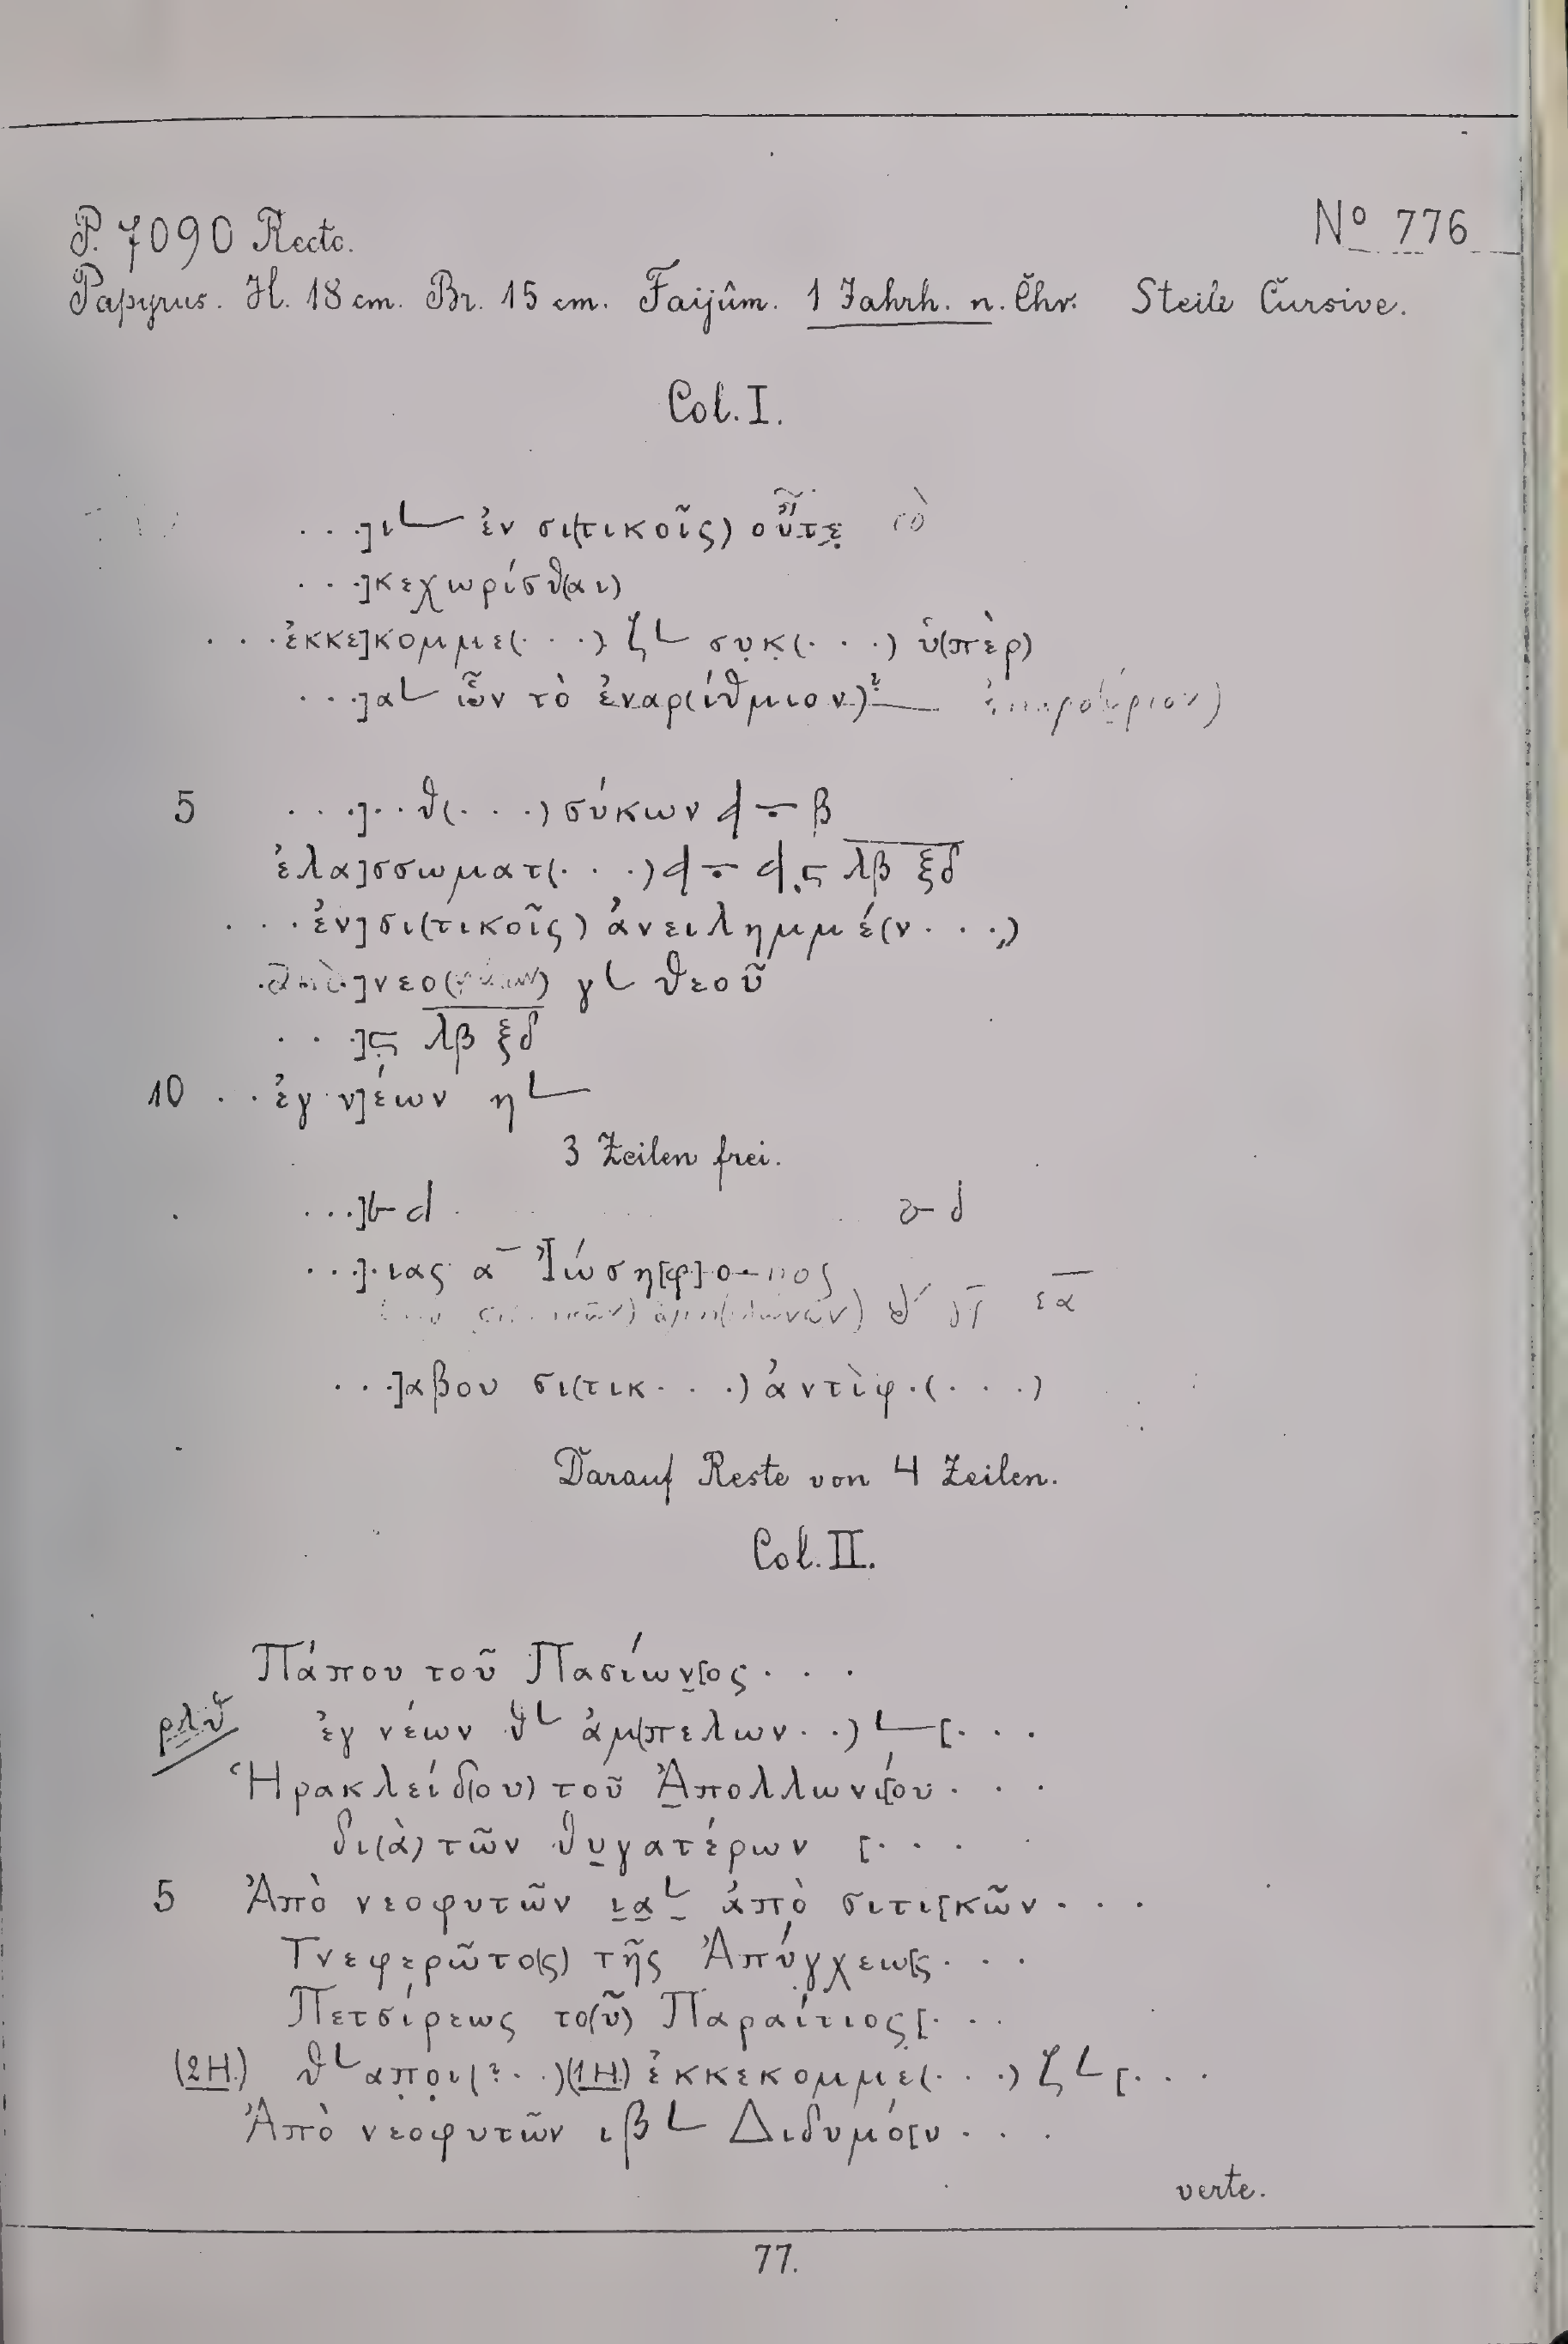 P. 7090 Recto. Nº 776
Papyrus. H. 18 cm. Br. 15 cm. Faijûm. 1 Jahrh. n. Chr. Steile Cursive.
Col. I.
. . .]ι└ ἐν σι(τικοῖς) οὔτε
. . .]κεχωρίσθ(αι)
. . . ἐκκε]κομμε(. . .) ζ└ συκ(. . .) ὑ(πὲρ)
. . .]α└ ὧν τὸ ἐναρ(ίθμιον)?
5 . . .]. . θ(. . .) σύκων ⳨ ÷ β
ἐλα]σσωματ(. . .) ⳨ ÷ ⳨ ϛ λβ ξδ
. . . ἐν] σι(τικοῖς) ἀνειλημμέ(ν . . .)
]νεο( ) γ└ θεοῦ
. . .]ϛ λβ ξδ
10 . . ἐγ ν]έων η└
3 Zeilen frei.
. . .]⳨ d
. . .]. ιας α¯ Ἰώση[φ]ο
. . .]αβου σι(τικ . . .) ἀντὶ φ.(. . .)
Darauf Reste von 4 Zeilen.
Col. II.
Πάπου τοῦ Πασίων[ος . . .
ἐγ νέων θ└ ἀμ(πελων . .) └ [. . .
Ἡρακλείδ(ου) τοῦ Ἀπολλων[ίου . . .
δι(ὰ) τῶν θυγατέρων [. . .
5 Ἀπὸ νεοφυτῶν ια└ ἀπὸ σιτι[κῶν . . .
Τνεφερῶτο(ς) τῆς Ἀπύγχεω[ς . . .
Πετσίρεως το(ῦ) Παραίτιος [. . .
(2 H.) θ└ αποι(? . .) (1 H.) ἐκκεκομμε(. . .) ζ└ [. . .
Ἀπὸ νεοφυτῶν ιβ└ Διδυμό[υ . . .
verte.
77.